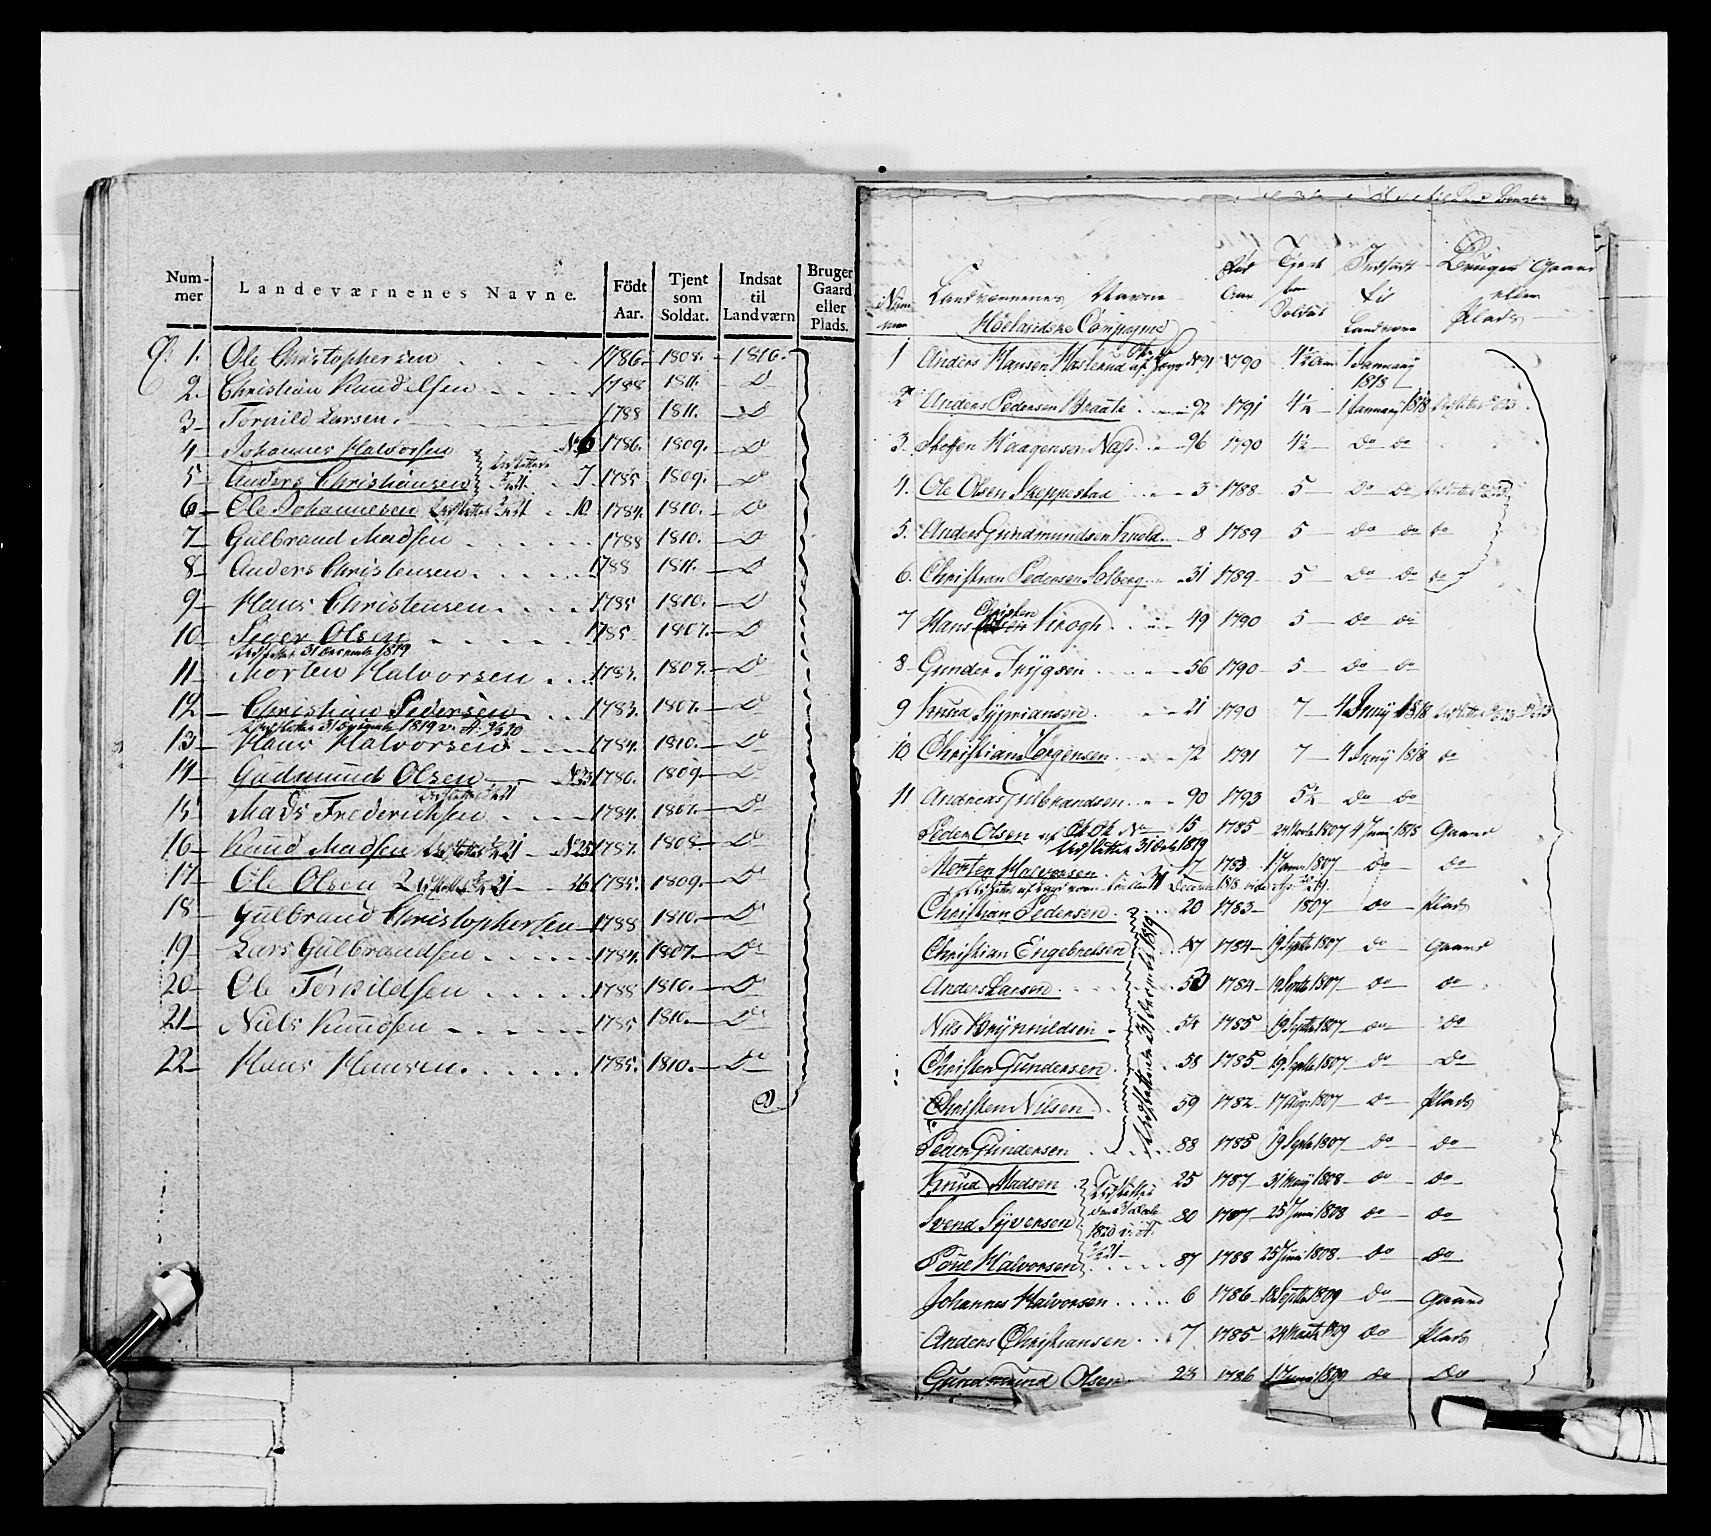 Num-
mer
Landeværnenes Navne.
Födt
Aar.
Tjent
som
Soldat.
Indsat
til
Landværn
Bruger
Gaard
eller
Plads.
1. Ole Christophersen 1786. 1808. 1810.
2. Christian Knudelsen 1788 1811. D
3 Torkild Larsen 1788 1811. D
4 Johannes Halvorsen No 6 1786. 1809. D
5 Anders Christiansen 7 1785 1809. D
6 Ole Johannesen 10 1784. 1810. Do
7 Gulbrand Madsen 1788 1810. D
8 Anders Christensen 1788 1811. D
9 Hans Christensen 1785 1810. D
10 Siver Olsen 1785 1807. D
Udslettet 31 December 1819
11 Morten Halvorsen 1783. 1809. Do
12 Christian Pedersen 1783. 1807. Do
13 Hans Halvorsen 1784. 1810. Do
14 Gudmund Olsen No 23 1786. 1809 Do
15 Mads Frederichsen 1784. 1807. Do
16 Knud Madsen No 25 1787. 1808. Do
17 Ole Olsen 26 1785. 1809. Do
18 Gulbrand Christophersen 1788 1810. Do
19 Lars Gulbrandsen 1784. 1807. Do
20 Ole Torkildsen 1788 1810. Do
21 Niels Knudsen 1785 1810. Do
22 Hans Hansen 1785. 1810. Do
Num
mer
Landværnenes Navne
Höelandske Compagnie
Fød
Aar
Tjent
som
Soldat
Indsadt
til
Landværn
Bruger Gaard
eller
Plads
1 Anders Hansen Haslerud No 91 1790 4½ Aar 1 January
1818
2 Anders Pedersen Braate 92 1791 4½ 1 January 1818
3. Haagensen Næss 96 1790 4½ Do Do
4. Ole Olsen Skeppestad 3 1788 5 Do Do
5. Anders Gundmundsen 8 1789 5 Do Do Do
6. Christian Pedersen Solberg 31 1789 5 Do Do Do
7 Hans Christen Krogh 49 1790 5 Do Do
8 Gunder Trygsen 56 1790 5 Do Do
9 Knud Sypriansen 21 1790 7 4 Juny 1818
10. Christian Jörgensen 72 1791 7 4 Juny 1818 Do
11 Andreas Gulbrandsen 90 1793 5¼ Do Do
Peder Olsen No 15 1785 1807 4 Juni 1818 Gaard
Udslettet 31 Decbr 1819
Morten Halvorsen 17 1783 1 Janr 1807 Do Do
Christian Pedersen 20 1783 1807 Do Plads
Christian Engebretsen 47 1784 19 Septbr 1807 Do Gaard
Anders Larsen 53 1784 19 Septbr 1807 Do Do
Nils Brynildsen 54 1785 19 Septbr 1807 Do Do
Christen Gundersen 58 1785 19 Septbr 1807 Do Do
Christen Nilsen 59 1782 17 Aug. 1807 Do Plads
Peder Gundersen 88 1785 19 Septbr 1807 Do Do
Udslettede 31 December 1819
Knud Madsen 25 1787 31 May 1808 Do Do
Svend Syversen 80 1787 25 Juni 1808 Do Do
Poul Halvorsen 87 1788 25 Juni 1808. Do Do
Johannes Halvorsen 6 1786 18 Septbr 1809 Do Gaard
Anders Christiansen 7 1785 24 Martz 1809 Do Plads
Gundmund Olsen 23 1786 1 Juni 1809 Do Do